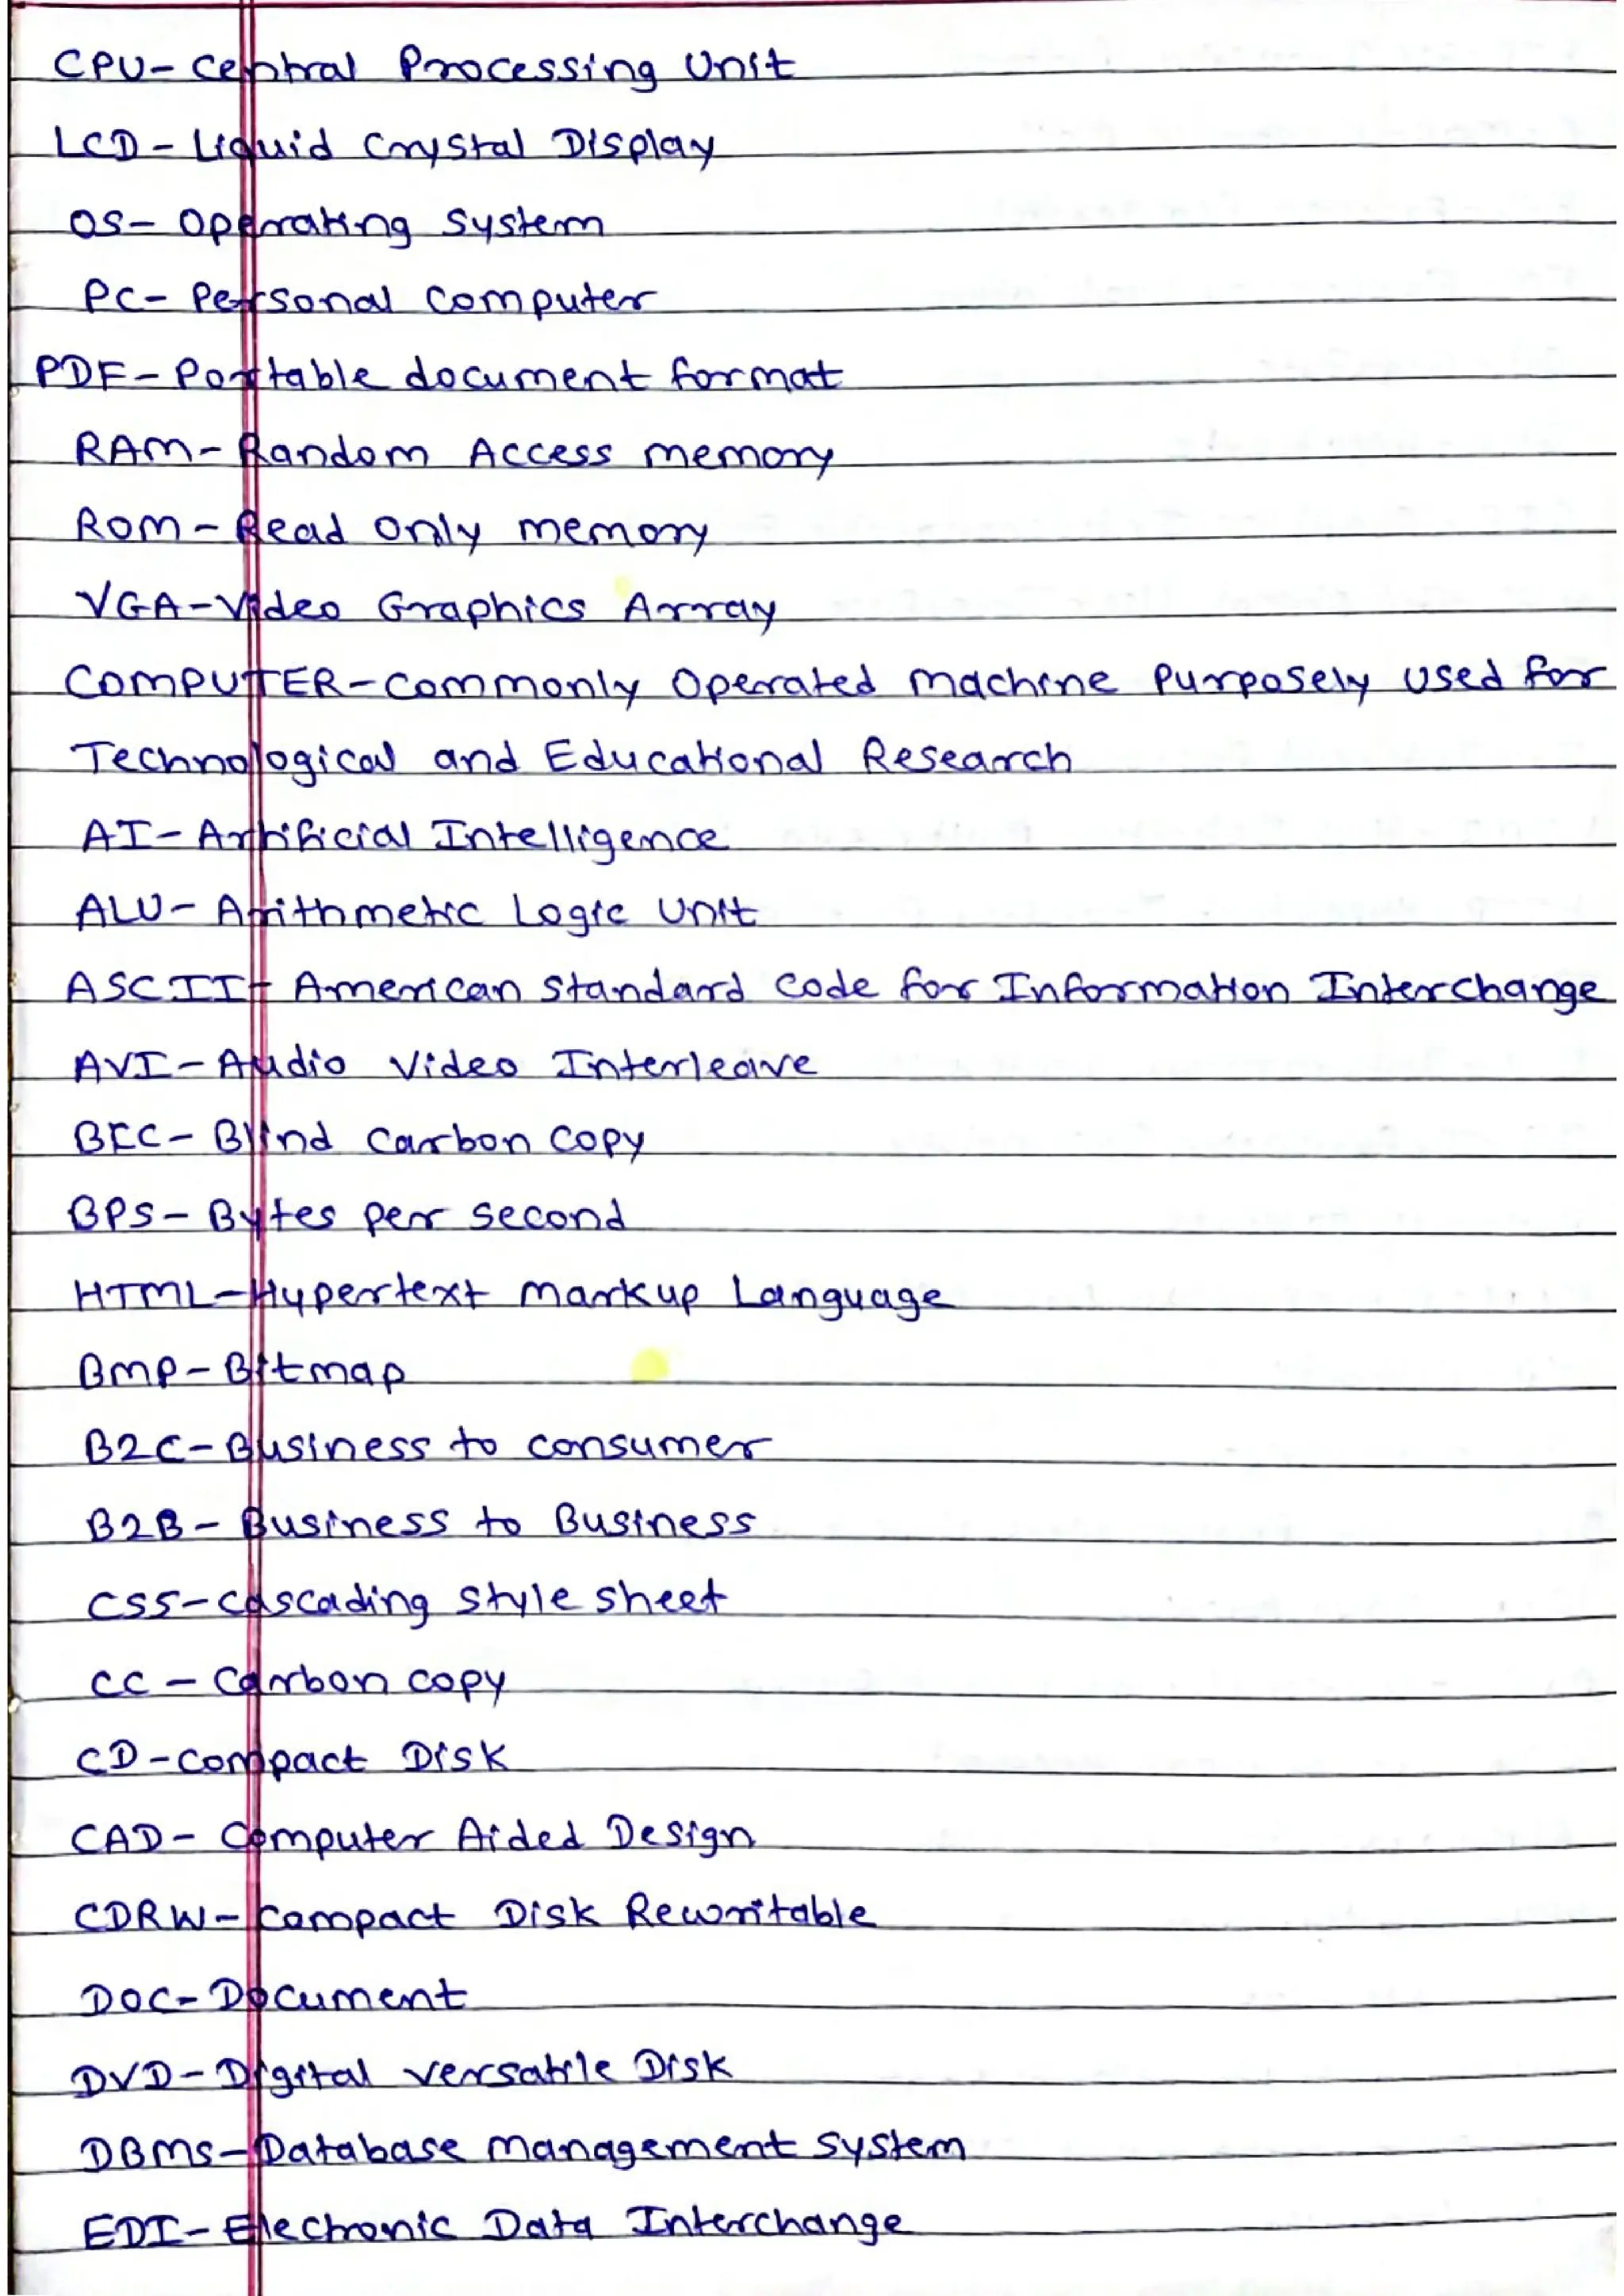 CPU- Central Processing Unit
LCD - Liquid Crystal Display
OS- Operating System
PC- Personal Computer
PDF- Portable document format
RAM- Random Access memory
ROM- Read Only memory
VGA-Video Graphics Array
COMPUTER-Commonly Operated Machine Purposely Used for
Technological and Educational Research
AI- Artificial Intelligence
ALU- Arithmetic Logic Unit
ASCII- American Standard Code for Information Interchange
AVI- Audio Video Interleave
BCC- Blind Carbon Copy
BPS- Bytes per second
HTML-Hypertext Markup Language
BMP-Bitmap
B2C-Business to consumer
B2B- Business to Business
CSS-Cascading style sheet
CC - Carbon copy
CD-Compact Disk
CAD- Computer Aided Design
CDRW- Compact Disk Rewritable
DOC- Document
DVD- Digital Versatile Disk
DBMS- Database Management System
EDI- Electronic Data Interchange